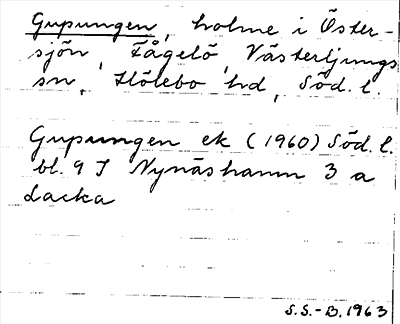 Gupungen, holme i Öster-
sjön, Fågelö, Västerljungs
sn, Hölebo hd, Söd. l.
Gupungen ek (1960) Söd. l.
bl. 9 I Nynäshamn 3 a
Lacka
S.S.-B. 1963